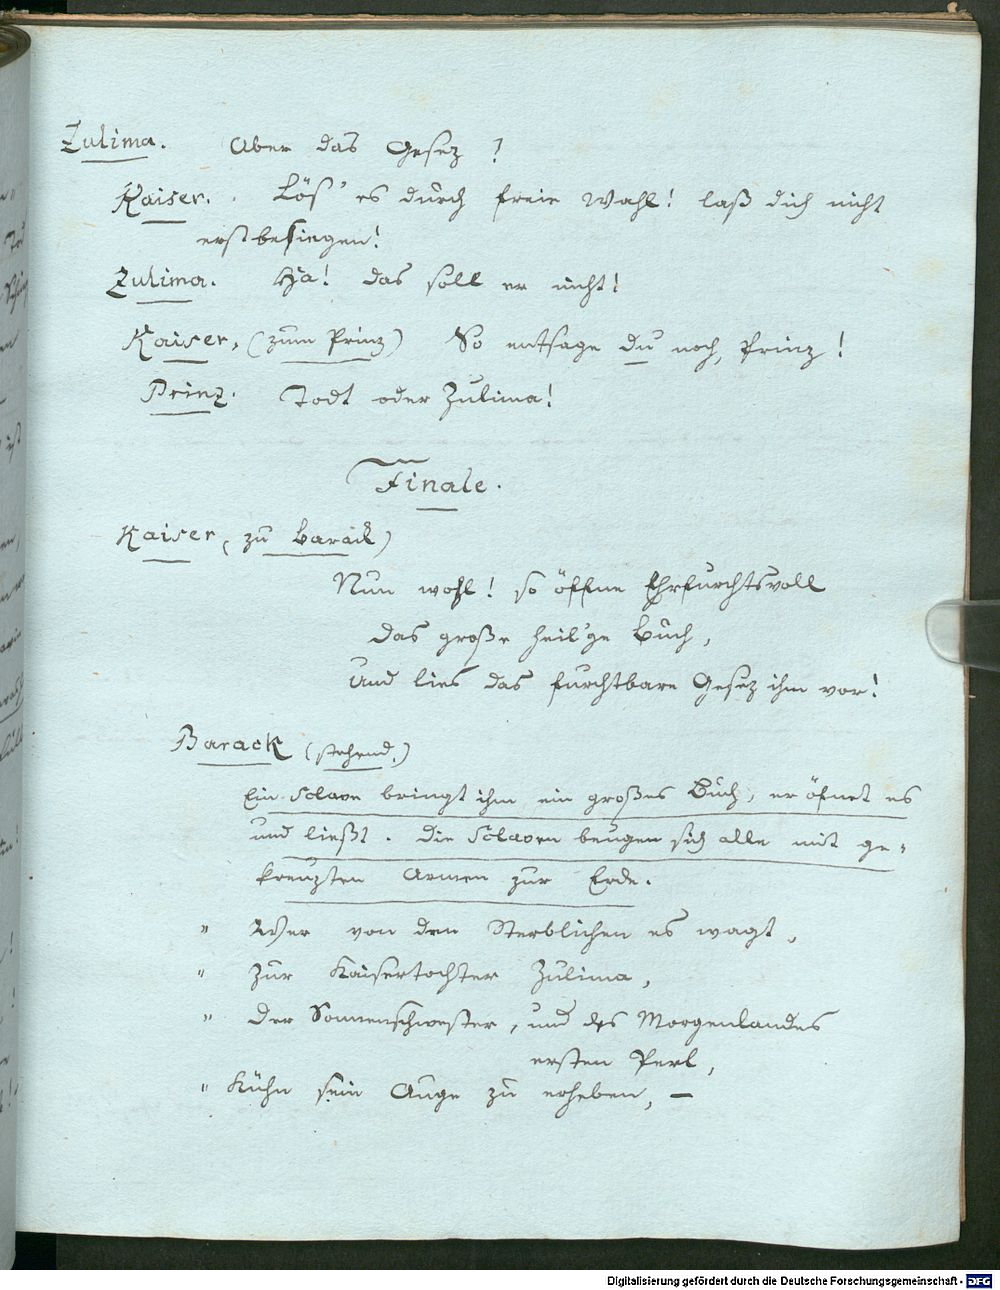 Zulima. Aber das Gesez?
Kaiser. Lös' es durch freie Wahl! laß dich nicht
erst besiegen!
Zulima. Ha! das soll er nicht!
Kaiser, (zum Prinz) So entsage du noch, Prinz!
Prinz. Todt oder Zulima!
Finale.
Kaiser, zu Barack)
Nun wohl! so öffne Ehrfurchtsvoll
das große heil'ge Buch,
Und lies das furchtbare Gesez ihm vor!
Barack (stehend.)
Ein Sclave bringt ihm ein großes Buch, er öfnet es
und ließt. Die Sclaven beugen sich alle mit ge-
kreuzten Armen zur Erde.
" Wer von den Sterblichen es wagt,
" Zur Kaisertochter Zulima,
" Der Sonnenschwester, und des Morgenlandes
ersten Perl,
" Kühn sein Auge zu erheben, —
Digitalisierung gefördert durch die Deutsche Forschungsgemeinschaft - DFG